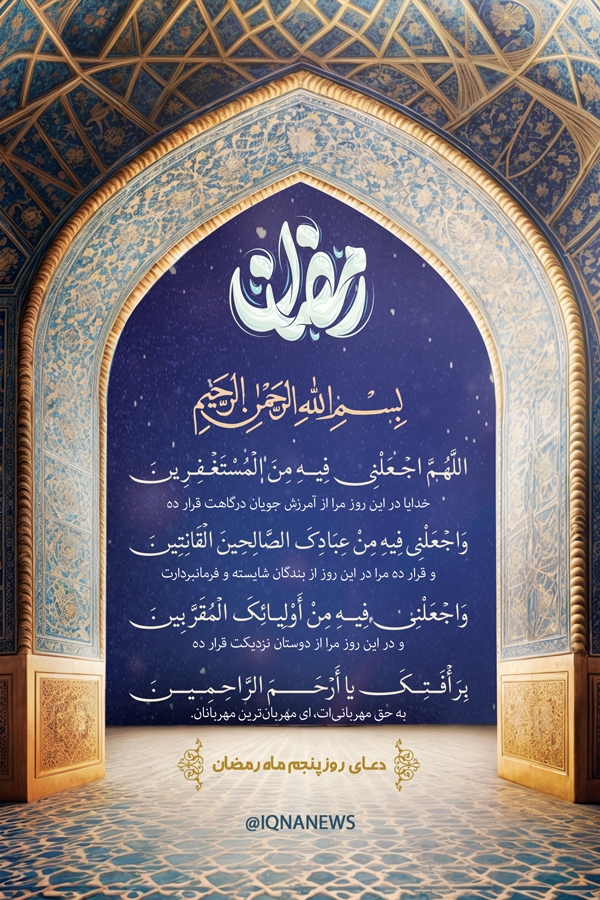 رمضان
بِسْمِ اللهِ الرَّحْمٰنِ الرَّحیمِ
اللّهُمَّ اجْعَلْنی فیهِ مِنَ الْمُسْتَغْفِرینَ
خدایا در این روز مرا از آمرزش جویان درگاهت قرار ده
وَاجْعَلْنی فیهِ مِنْ عِبَادِکَ الصَّالِحینَ الْقَانِتِینَ
و قرار ده مرا در این روز از بندگان شایسته و فرمانبردارت
وَاجْعَلْنِی فِیهِ مِنْ أَوْلِیائِکَ الْمُقَرَّبِینَ
و در این روز مرا از دوستان نزدیکت قرار ده
بِرَأْفَتِکَ یا أَرْحَمَ الرَّاحِمِینَ
به حق مهربانی‌ات، ای مهربان‌ترین مهربانان.
دعای روز پنجم ماه رمضان
@IQNANEWS